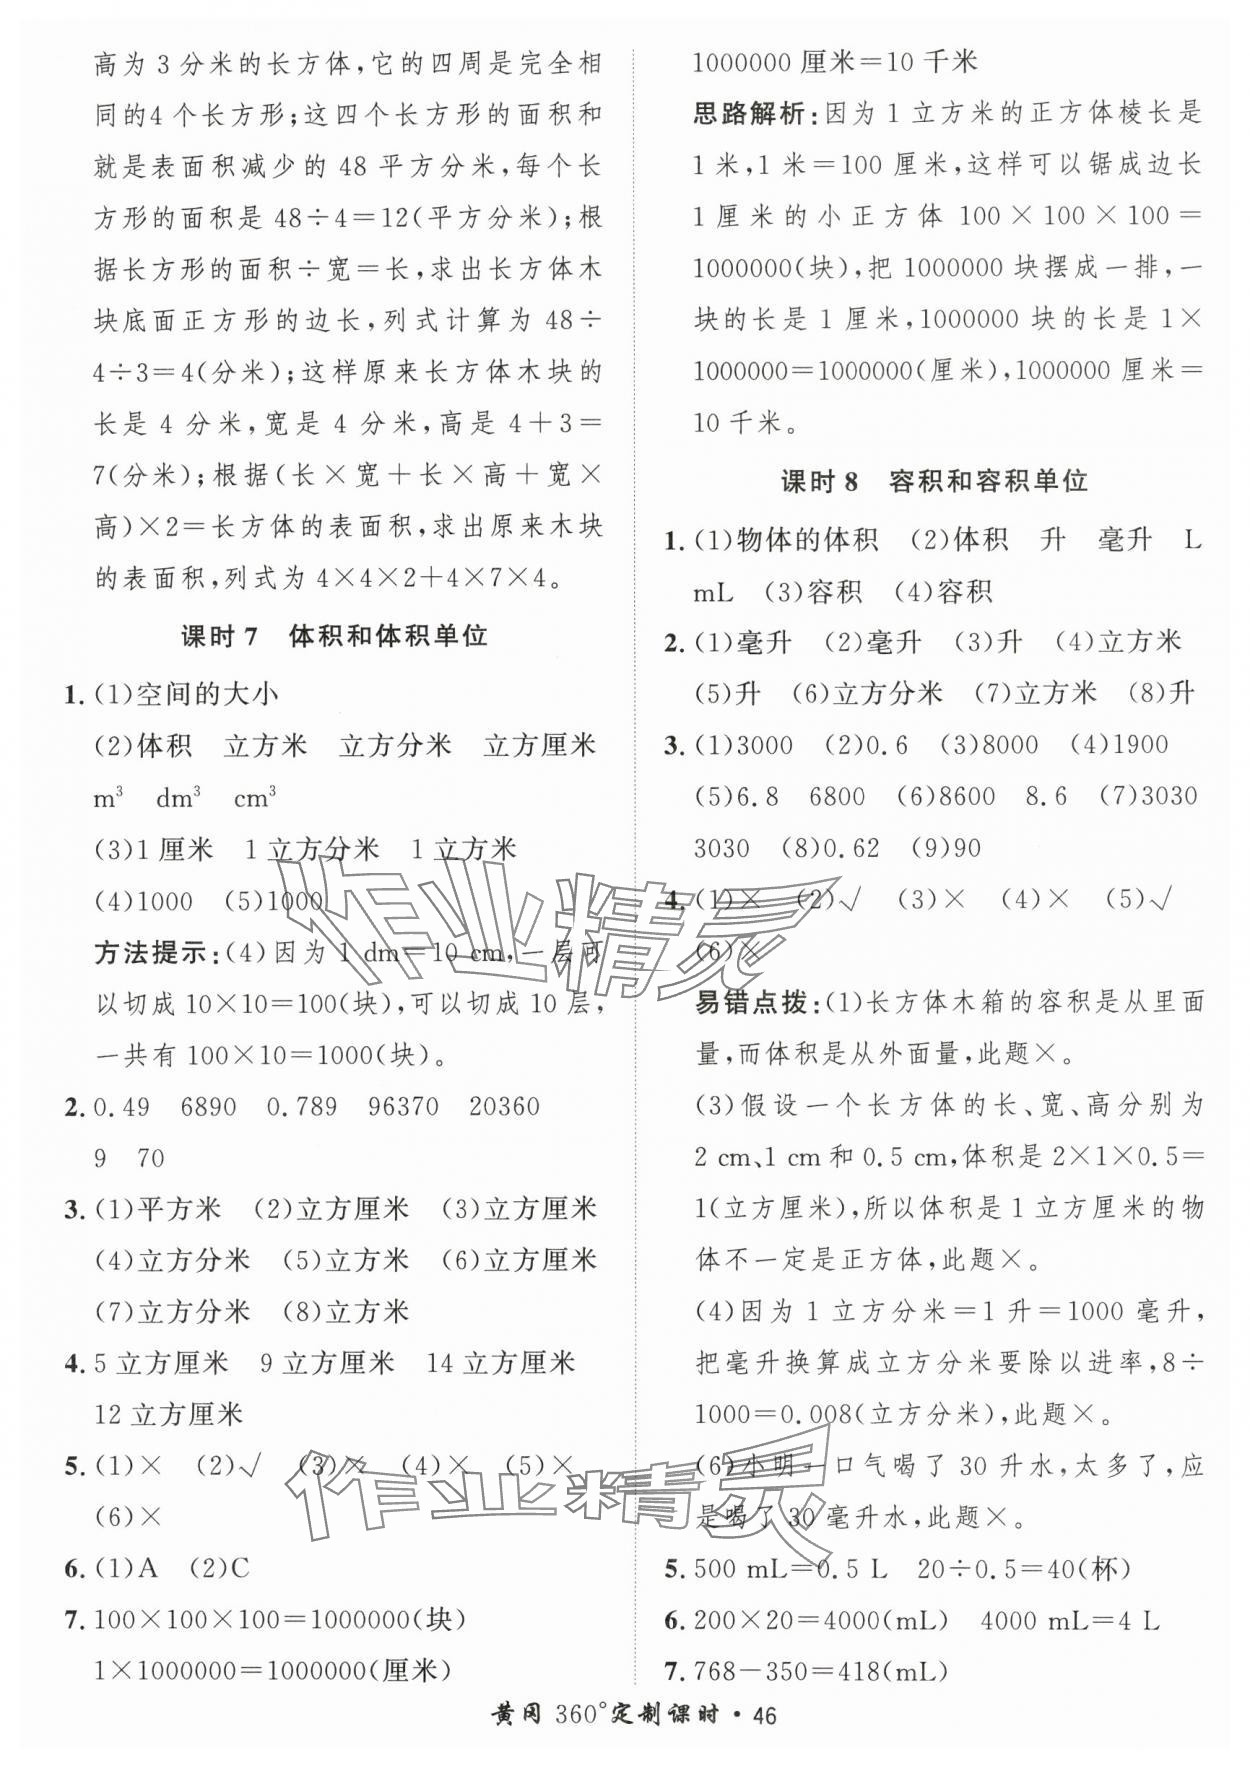 高为 3 分米的长方体,它的四周是完全相
同的4 个长方形;这四个长方形的面积和
就是表面积减少的 48 平方分米,每个长
方形的面积是 48÷4=12(平方分米);根
据长方形的面积÷宽=长,求出长方体木
块底面正方形的边长,列式计算为 48÷
4÷3=4(分米);这样原来长方体木块的
长是 4 分米,宽是 4 分米,高是 4+3=
7(分米);根据(长×宽+长×高+宽×
高)×2=长方体的表面积,求出原来木块
的表面积,列式为 4×4×2+4×7×4。
课时 7 体积和体积单位
1. (1)空间的大小
(2)体积 立方米 立方分米 立方厘米
m³ dm³ cm³
(3)1 厘米 1 立方分米 1 立方米
(4)1000 (5)1000
方法提示:(4)因为 1 dm=10 cm,一层可
以切成 10×10=100(块),可以切成 10 层,
一共有 100×10=1000(块)。
2. 0.49 6890 0.789 96370 20360
9 70
3. (1)平方米 (2)立方厘米 (3)立方厘米
(4)立方分米 (5)立方米 (6)立方厘米
(7)立方分米 (8)立方米
4. 5 立方厘米 9 立方厘米 14 立方厘米
12 立方厘米
5. (1)× (2)√ (3)× (4)× (5)×
(6)×
6. (1)A (2)C
7. 100×100×100=1000000(块)
1×1000000=1000000(厘米)
1000000 厘米=10 千米
思路解析:因为 1 立方米的正方体棱长是
1 米,1 米=100 厘米,这样可以锯成边长
1 厘米的小正方体 100×100×100=
1000000(块),把 1000000 块摆成一排,一
块的长是 1 厘米,1000000 块的长是 1×
1000000=1000000(厘米),1000000 厘米=
10 千米。
课时 8 容积和容积单位
1. (1)物体的体积 (2)体积 升 毫升 L
mL (3)容积 (4)容积
2. (1)毫升 (2)毫升 (3)升 (4)立方米
(5)升 (6)立方分米 (7)立方米 (8)升
3. (1)3000 (2)0.6 (3)8000 (4)1900
(5)6.8 6800 (6)8600 8.6 (7)3030
3030 (8)0.62 (9)90
4. (1)× (2)√ (3)× (4)× (5)√
(6)×
易错点拨:(1)长方体木箱的容积是从里面
量,而体积是从外面量,此题×。
(3)假设一个长方体的长、宽、高分别为
2 cm、1 cm 和 0.5 cm,体积是 2×1×0.5=
1(立方厘米),所以体积是 1 立方厘米的物
体不一定是正方体,此题×。
(4)因为 1 立方分米=1 升=1000 毫升,
把毫升换算成立方分米要除以进率,8÷
1000=0.008(立方分米),此题×。
(6)小明一口气喝了 30 升水,太多了,应
是喝了 30 毫升水,此题×。
5. 500 mL=0.5 L 20÷0.5=40(杯)
6. 200×20=4000(mL) 4000 mL=4 L
7. 768-350=418(mL)
作业精灵
作业精灵
黄冈 360°定制课时·46